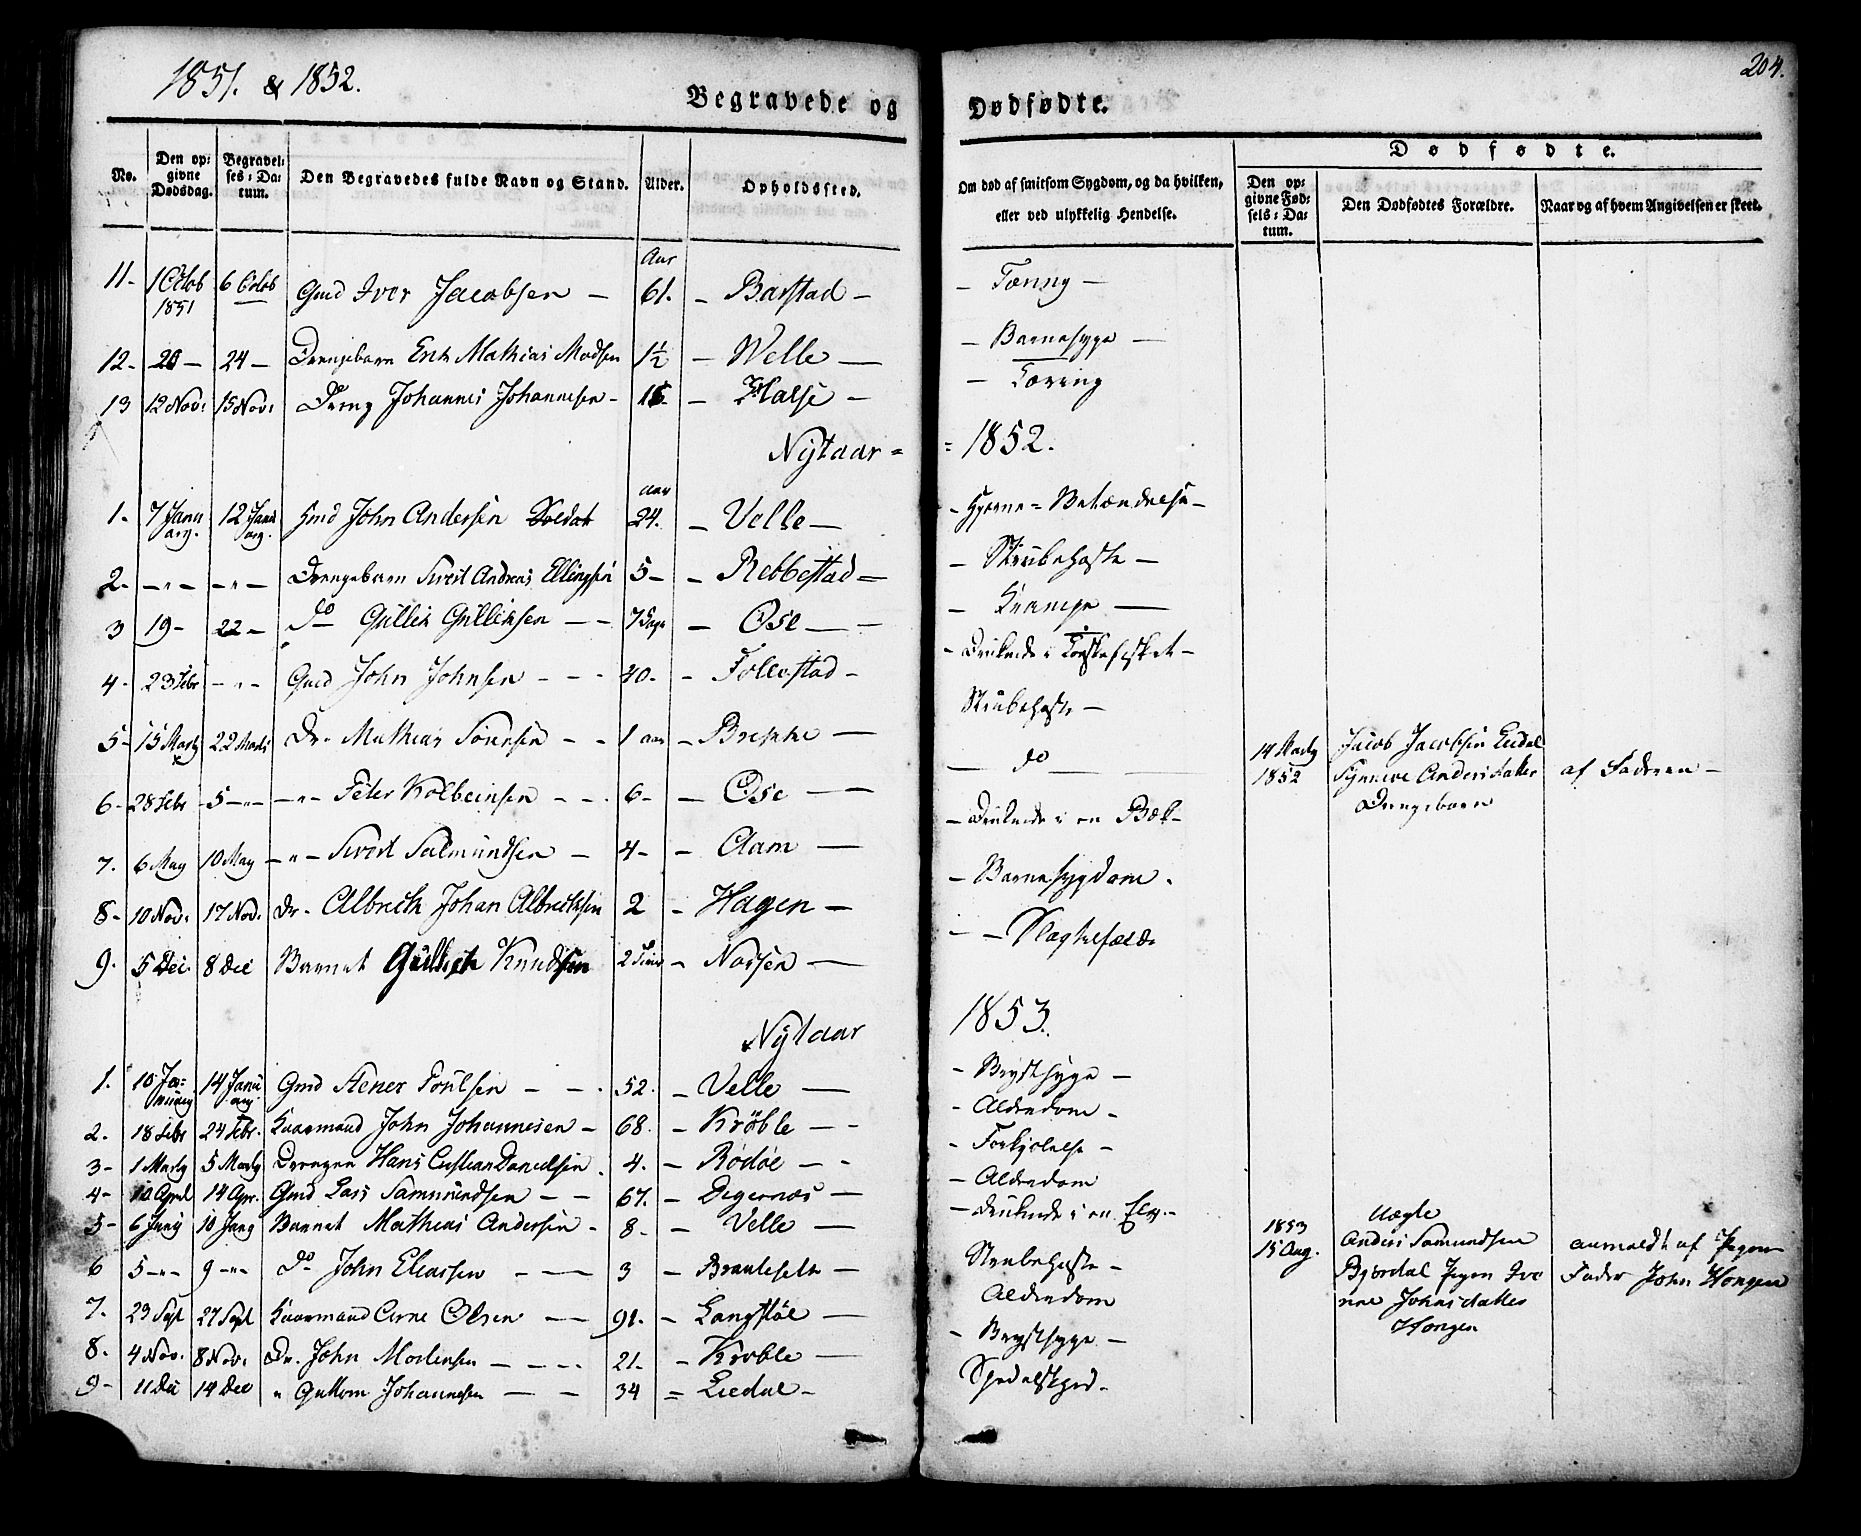 1851. & 1852.
204.
Begravede og Dødfødte.
No.
Den op-
givne
Dødsdag.
Begravel-
ses-Da-
tum.
Den Begravedes fulde Navn og Stand.
Alder.
Opholdssted.
Om død af smitsom Sygdom, og da hvilken,
eller ved ulykkelig Hendelse.
Dødfødte.
Den op-
givne Fød-
sels-Da-
tum.
Den Dødfødtes Forældre.
Naar og af hvem Angivelsen er skeet.
Aar
11- 1 Octob 1851 6 Octob Gmd Iver Jacobsen - 61. - Barstad - - Tæring -
12- 20 - 24 - Drengebarn Erik Mathias Madsen 1½ - Welle - - Barnesyge -
13 12 Nov: 15 Nov: Dreng Johannes Johannesen - - Halse - - Tæring
Nytaar = = 1852.
aar
1- 7 Janu arg. 12 Janu arg. Gmd John Andersen Soldat 24. - Velle - - Hjerne = Betændelse -
2- -"- -"- Drengebarn Sivert Andreas Ellingsen 5 - - Rebbestad = - Strubehoste -
3 19- 22- do Gullik Gulliksen - - 7 Dage - Ose - - - Krampe -
4- 23 Febr -"- Gmd John Johnsen - - - 40. - Follestad - - Druknede i Torskefisket -
5- 15 Marty 22 Marti Dr. Mathias - - 1 aar - Brekke - Strubehoste -
6- 28 Febr - 5 -"- -"- Peter Kolbeinsen - - - 6- - Ose - - do -
7. 6 May 10 May -"- Sivert Salmundsen - 4- - Aam - - Druknede i en Bæk -
8- 10 Nov. 17 Nov. Dr. Albrecht Johan Albrechtsen 2 - Hagen - - Barnesygdom.
9. 5 Dec. 8 Dec Barnet Knudsen 2 - -
14 Marty
1852
Jacob Jacobsen Eidal
Synneve Andersdatter
Drengebarn
af Faderen -
Nytaar 1853.
1. 10 Ja- nuary 14 Janu ary. Gmd Stener Poulsen - - . 52. - Velle - - Brystsyge -
2. 18 Febr 24 Febr. Kaarmand John Johannesen - 68. - Krøble - - - Alderdom -
3- 1 Marty 5 Marty Drengen Hans Danielsen. 4. - Rødøe - - - Forkjølelse -
4- 10 April 14 Apr. Gmd Lars Samundsen - - 67. - Degernæs - - Alderdom
5- 6 Juny 10 Juny Barnet Mathias Andersen - 8- - Velle - - Druknede i en Elv. -
6 5 -"- 9 -"- do John Eliassen - - 3 - - Strubehoste -
7. 23 Sept 27 Sept Kaarmand Arne Olsen - - 91. - Langstøl - Alderdom
8. 4 Nov. 8 Nov. Dr. John Mortensen - - - - 21. - Krøble - - Brystsyge -
9- 11 Dec 14 Dec " Guttorm Johannesen - - 34 = Liedal - Spedalskhed.
1853
15 Aug.
Uægte
Anders Samundsen
Bjørdal Pigen Ivo
nne Johnsdatter
Hongen
anmeldt af Pigens
Fader John Hongen